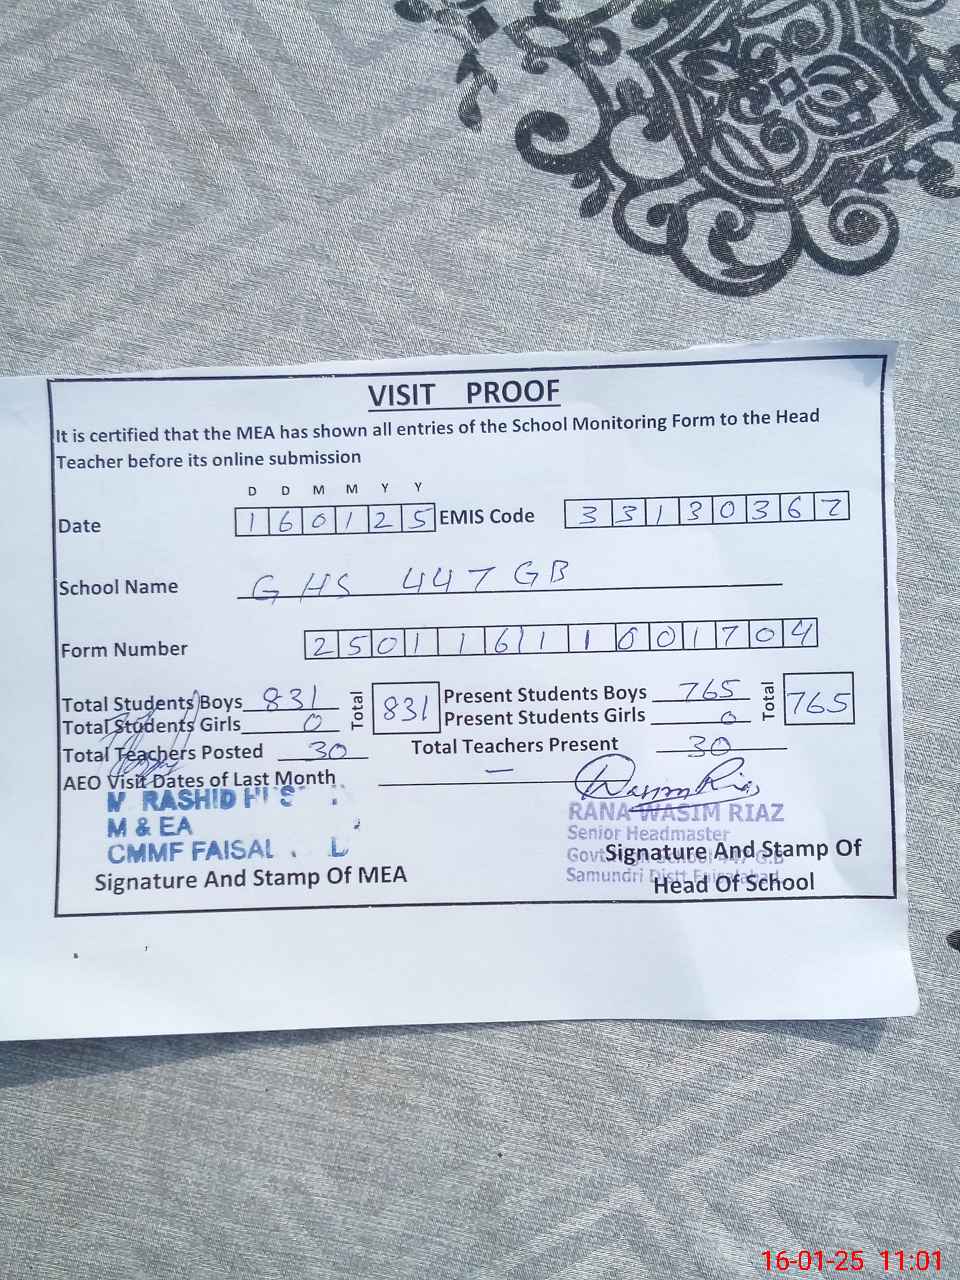 VISIT PROOF
It is certified that the MEA has shown all entries of the School Monitoring Form to the Head
Teacher before its online submission
D D M M Y Y
Date 1 6 0 1 2 5 EMIS Code 3 3 1 3 0 3 6 7
School Name G HS 447 GB
Form Number 2 5 0 1 1 6 1 1 0 0 1 7 0 4
Total Students Boys 831 Total 831 Present Students Boys 765 Total 765
Total Students Girls 0 Present Students Girls 0
Total Teachers Posted 30 Total Teachers Present 30
AEO Visit Dates of Last Month —
Wasim Riaz
M RASHID
M & EA
CMMF FAISAL
Signature And Stamp Of MEA
RANA WASIM RIAZ
Senior Headmaster
Govt. High School 447 G.B
Samundri Distt Faisalabad
Signature And Stamp Of
Head Of School
16-01-25 11:01